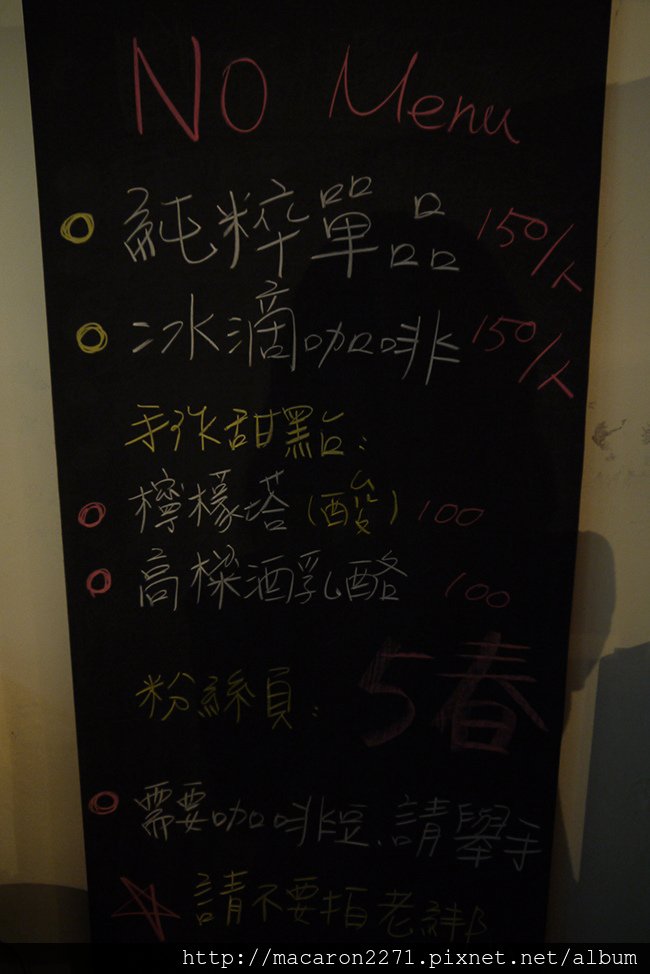 No Menu
純粹單品 150/人
冰滴咖啡 150/人
手作甜點:
檸檬塔(酸) 100
高樑酒乳酪 100
粉絲頁: 5春
需要咖啡豆、請舉手
請不要拍老綁
http://macaron2271.pixnet.net/album